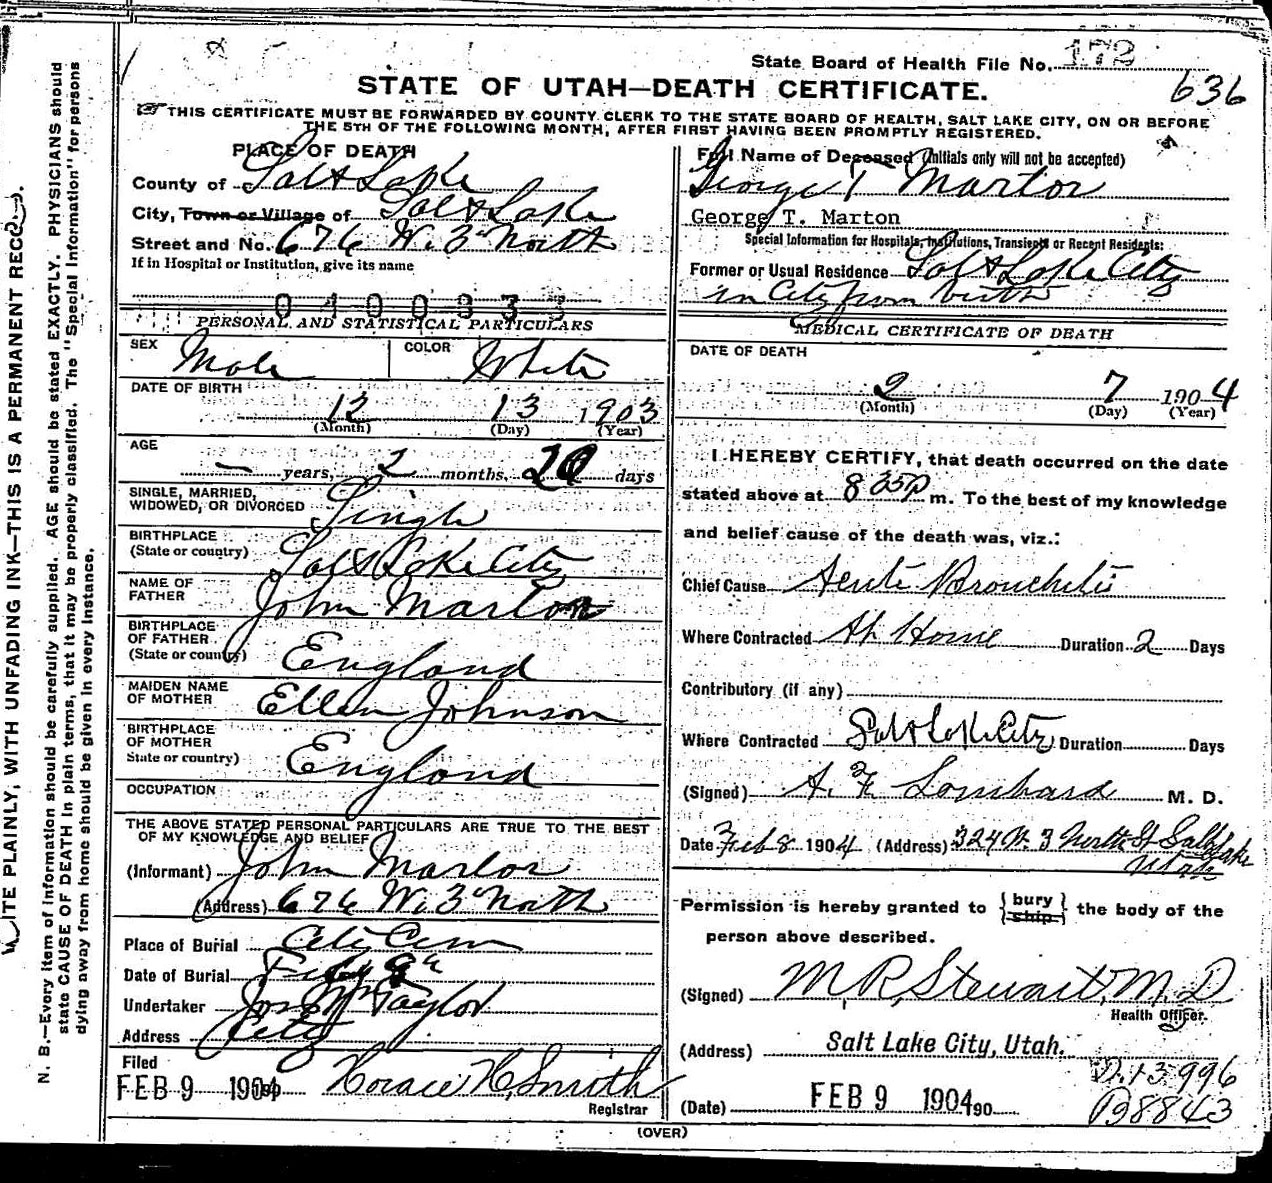 State Board of Health File No. 172
636
STATE OF UTAH—DEATH CERTIFICATE.
THIS CERTIFICATE MUST BE FORWARDED BY COUNTY CLERK TO THE STATE BOARD OF HEALTH, SALT LAKE CITY, ON OR BEFORE
THE 5TH OF THE FOLLOWING MONTH, AFTER FIRST HAVING BEEN PROMPTLY REGISTERED.
PLACE OF DEATH
County of Salt Lake
City, Town or Village of Salt Lake
Street and No. 676 W. 3" North
If in Hospital or Institution, give its name
PERSONAL AND STATISTICAL PARTICULARS
SEX Male COLOR White
DATE OF BIRTH
12 13 1903
(Month) (Day) (Year)
AGE
— years, 2 months, days
SINGLE, MARRIED,
WIDOWED, OR DIVORCED Single
BIRTHPLACE
(State or country) Salt Lake City
NAME OF
FATHER John Marton
BIRTHPLACE
OF FATHER
(State or country) England
MAIDEN NAME
OF MOTHER Ellen Johnson
BIRTHPLACE
OF MOTHER
State or country) England
OCCUPATION
THE ABOVE STATED PERSONAL PARTICULARS ARE TRUE TO THE BEST
OF MY KNOWLEDGE AND BELIEF
(Informant) John Marton
(Address) 676 W. 3" North
Place of Burial City Cem
Date of Burial Feby 9"
Undertaker Jos Wm Taylor
Address City
Filed
FEB 9 1904 Horace H. Smith
Registrar
Full Name of Deceased (Initials only will not be accepted)
George T Marton
George T. Marton
Special Information for Hospitals, Institutions, Transients or Recent Residents:
Former or Usual Residence Salt Lake City
in City from birth
MEDICAL CERTIFICATE OF DEATH
DATE OF DEATH
2 7 1904
(Month) (Day) (Year)
I HEREBY CERTIFY, that death occurred on the date
stated above at 8 35 P m. To the best of my knowledge
and belief cause of the death was, viz.:
Chief Cause Acute Bronchitis
Where Contracted At Home Duration 2 Days
Contributory (if any)
Where Contracted Salt Lake City Duration Days
(Signed) A. F. Lombard M. D.
Date Feb 8 1904 (Address) 324 W. 3 North St Salt Lake
Utah
Permission is hereby granted to {bury
ship} the body of the
person above described.
(Signed) M. R. Stewart, M. D
Health Officer.
(Address) Salt Lake City, Utah.
D. 13996
(Date) FEB 9 1904 90
B 8843
(OVER)
WRITE PLAINLY, WITH UNFADING INK—THIS IS A PERMANENT RECORD.
N. B.—Every item of information should be carefully supplied. AGE should be stated EXACTLY. PHYSICIANS should
state CAUSE OF DEATH in plain terms, that it may be properly classified. The "Special Information" for persons
dying away from home should be given in every instance.